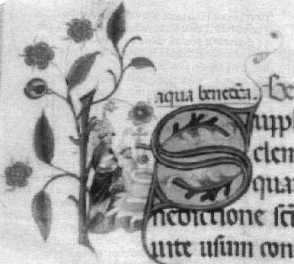 aqua benecta. Be
Suppl
clem
qua
nedictione scī
uite usum con